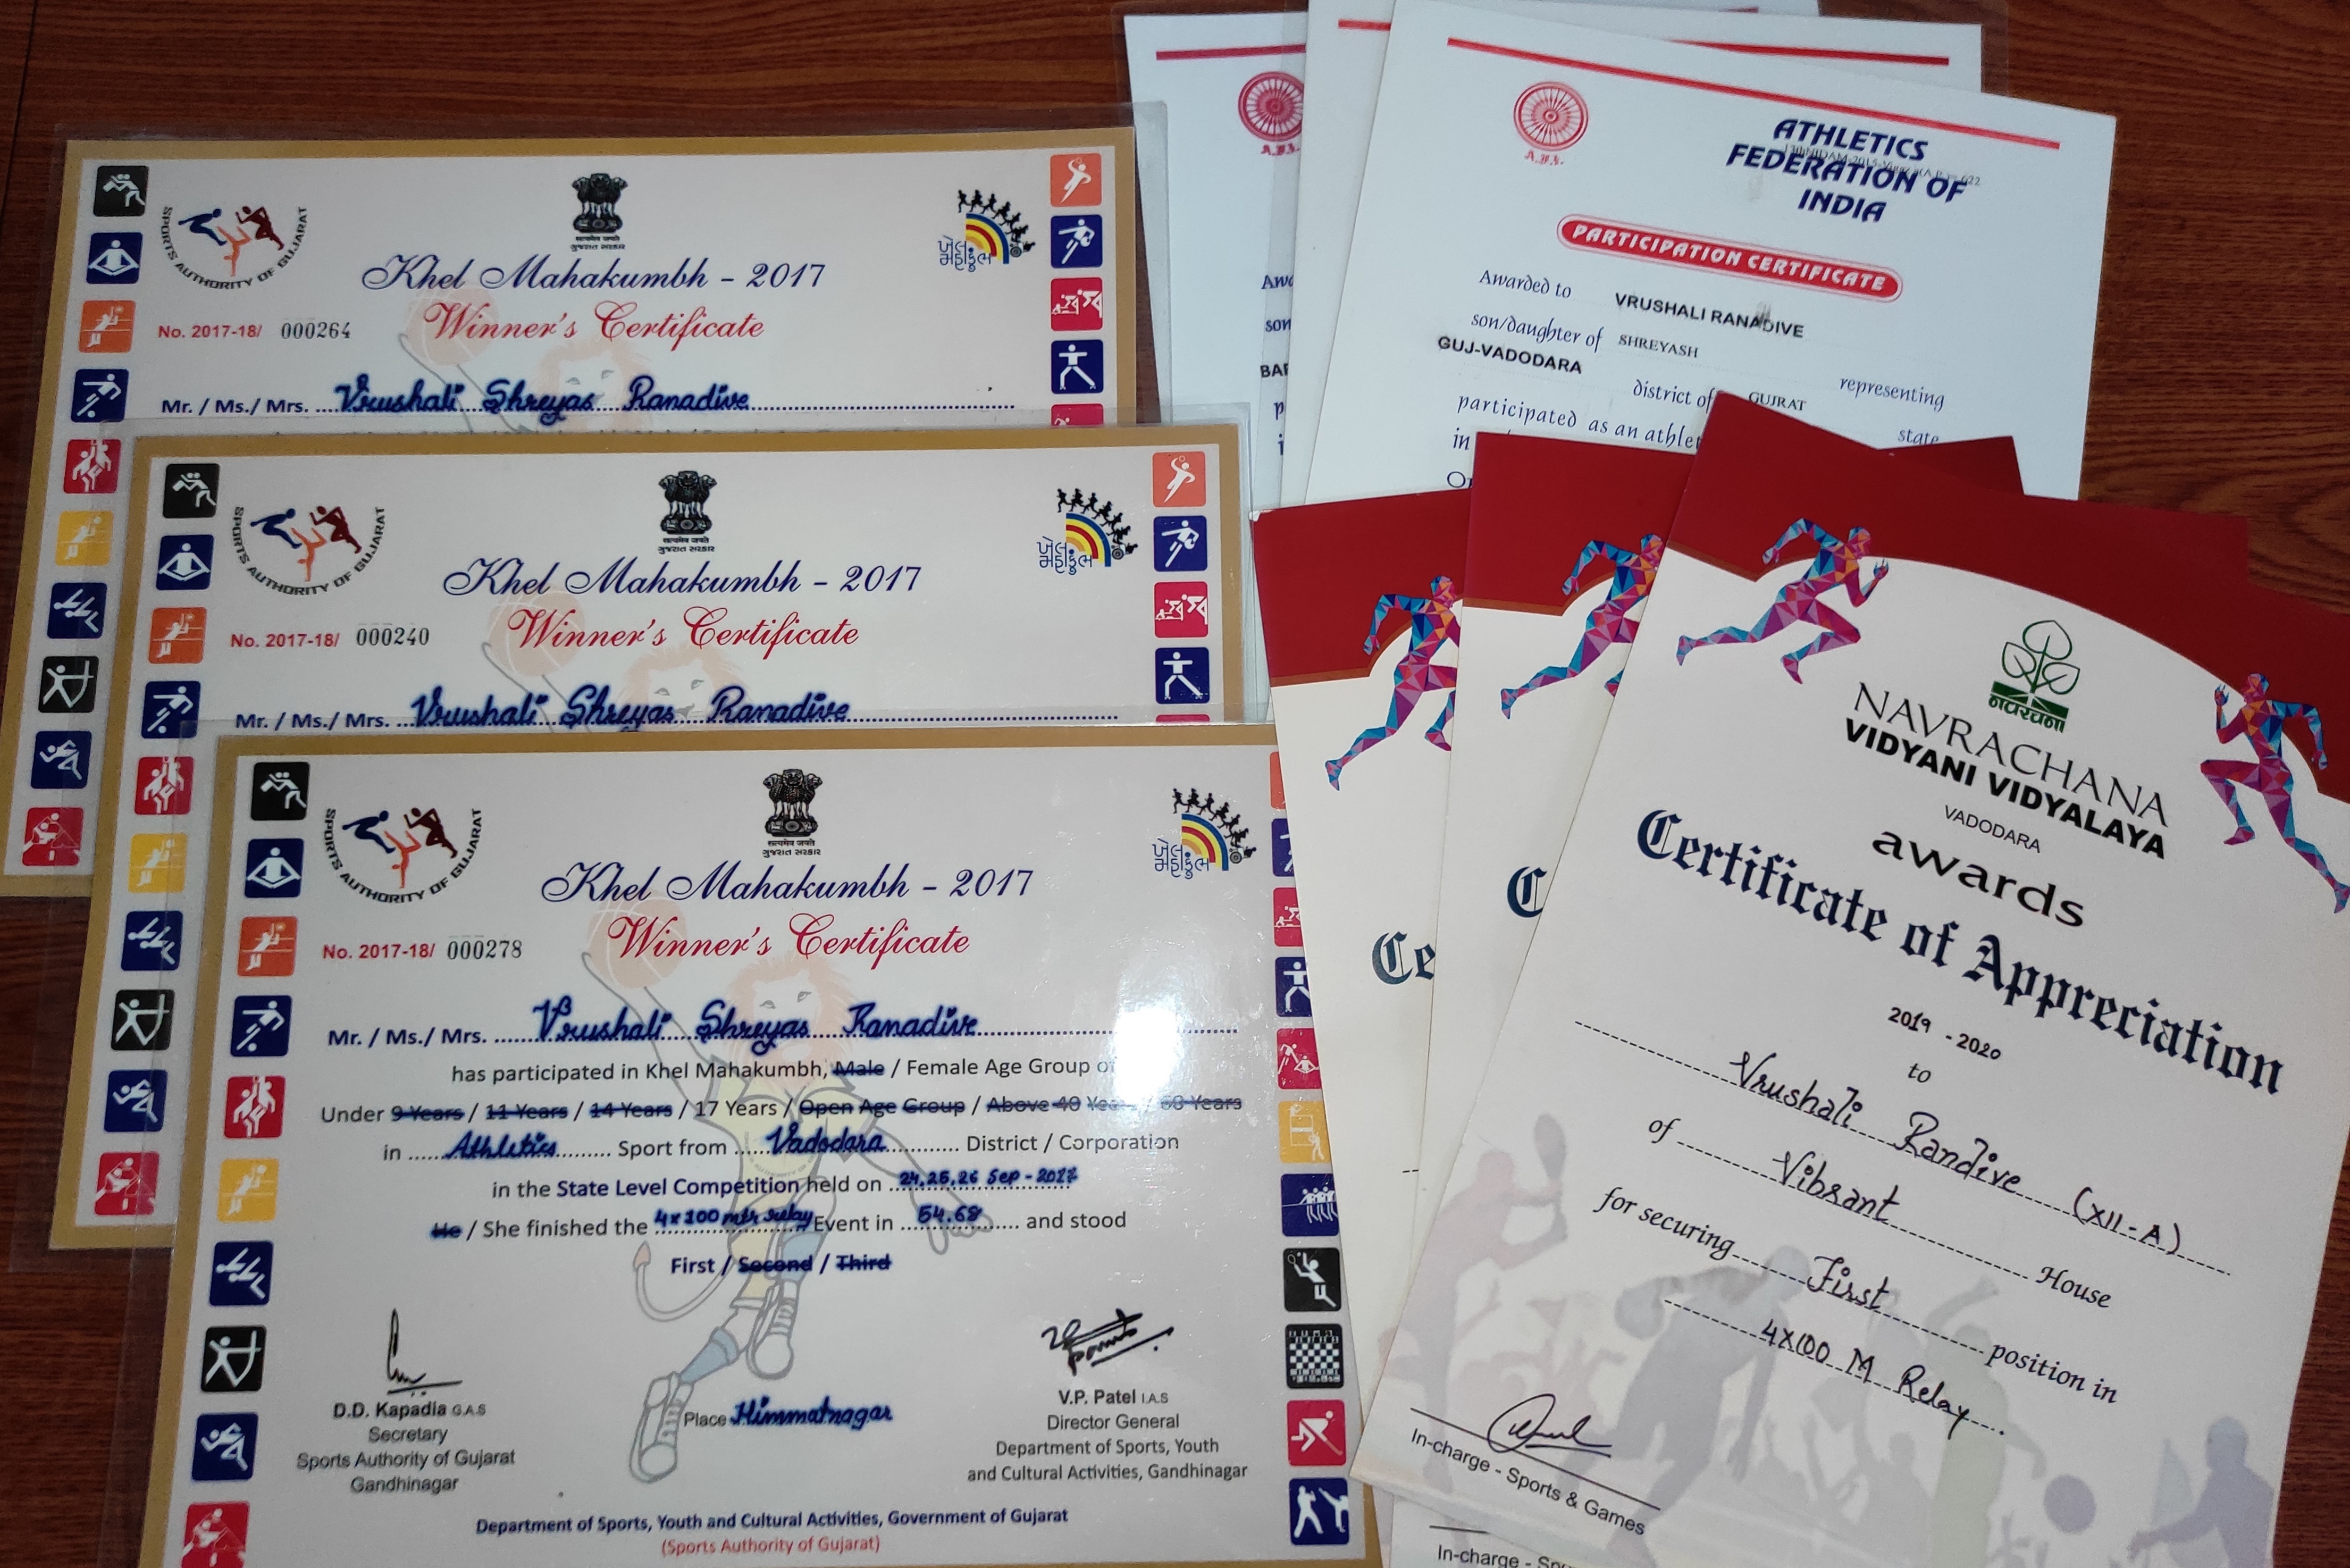 SPORTS AUTHORITY OF GUJARAT
सत्यमेव जयते
ગુજરાત સરકાર
ખેલ
મહાકુંભ
Khel Mahakumbh - 2017
No. 2017-18/ 000264
Winner's Certificate
Mr. / Ms./ Mrs. Vrushali Shreyas Ranadive
SPORTS AUTHORITY OF GUJARAT
सत्यमेव जयते
ગુજરાત સરકાર
ખેલ
મહાકુંભ
Khel Mahakumbh - 2017
No. 2017-18/ 000240
Winner's Certificate
Mr. / Ms./ Mrs. Vrushali Shreyas Ranadive
SPORTS AUTHORITY OF GUJARAT
सत्यमेव जयते
ગુજરાત સરકાર
ખેલ
મહાકુંભ
Khel Mahakumbh - 2017
No. 2017-18/ 000278
Winner's Certificate
Mr. / Ms./ Mrs. Vrushali Shreyas Ranadive
has participated in Khel Mahakumbh, Male / Female Age Group of
Under 9 Years / 11 Years / 14 Years / 17 Years / Open Age Group / Above 40 Years / 60 Years
in Athletics Sport from Vadodara District / Corporation
in the State Level Competition held on 24,25,26 Sep - 2017
He / She finished the 4x100 mtr relay Event in 54.68 and stood
First / Second / Third
D.D. Kapadia G.A.S
Secretary
Sports Authority of Gujarat
Gandhinagar
Place Himmatnagar
V.P. Patel I.A.S
Director General
Department of Sports, Youth
and Cultural Activities, Gandhinagar
Department of Sports, Youth and Cultural Activities, Government of Gujarat
(Sports Authority of Gujarat)
A.F.I.
Awa
son
BAR
p
i
A.F.I.
ATHLETICS
FEDERATION OF
INDIA
PARTICIPATION CERTIFICATE
Awarded to VRUSHALI RANADIVE
son/daughter of SHREYASH
GUJ-VADODARA district of GUJRAT representing
participated as an athlet state
in
O
Ce
C
નવરચના
NAVRACHANA
VIDYANI VIDYALAYA
VADODARA
awards
Certificate of Appreciation
2019 - 2020
to
Vrushali Randive (XII-A)
of Vibrant House
for securing First position in
4X100 M Relay
In-charge - Sports & Games
In-charge - Spo